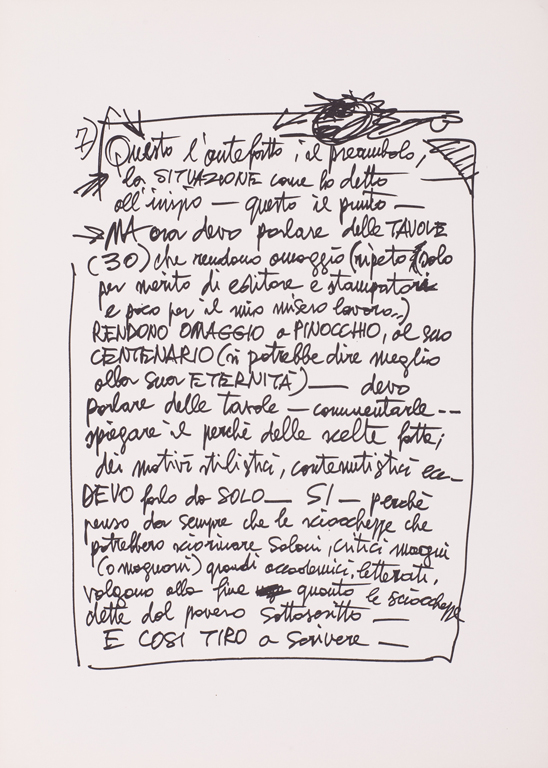 7)
Questo l'antefatto, il preambolo,
la SITUAZIONE come ho detto
all'inizio — questo il punto —
MA ora devo parlare delle TAVOLE
(30) che rendono omaggio (ripeto solo
per merito di editore e stampatori
e poco per il mio misero lavoro..)
RENDONO OMAGGIO a PINOCCHIO, al suo
CENTENARIO (si potrebbe dire meglio
alla sua ETERNITÀ) — devo
parlare delle tavole — commentarle --
spiegare il perchè delle scelte fatte;
dei motivi stilistici, contenutistici ecc—
DEVO farlo da SOLO — SI — perchè
penso da sempre che le sciocchezze che
potrebbero sciorinare Saloni, critici magri
(o magnoni) grandi accademici, letterati,
valgono alla fine quanto le sciocchezze
dette dal povero Sottoscritto —
E COSÌ TIRO a scrivere —